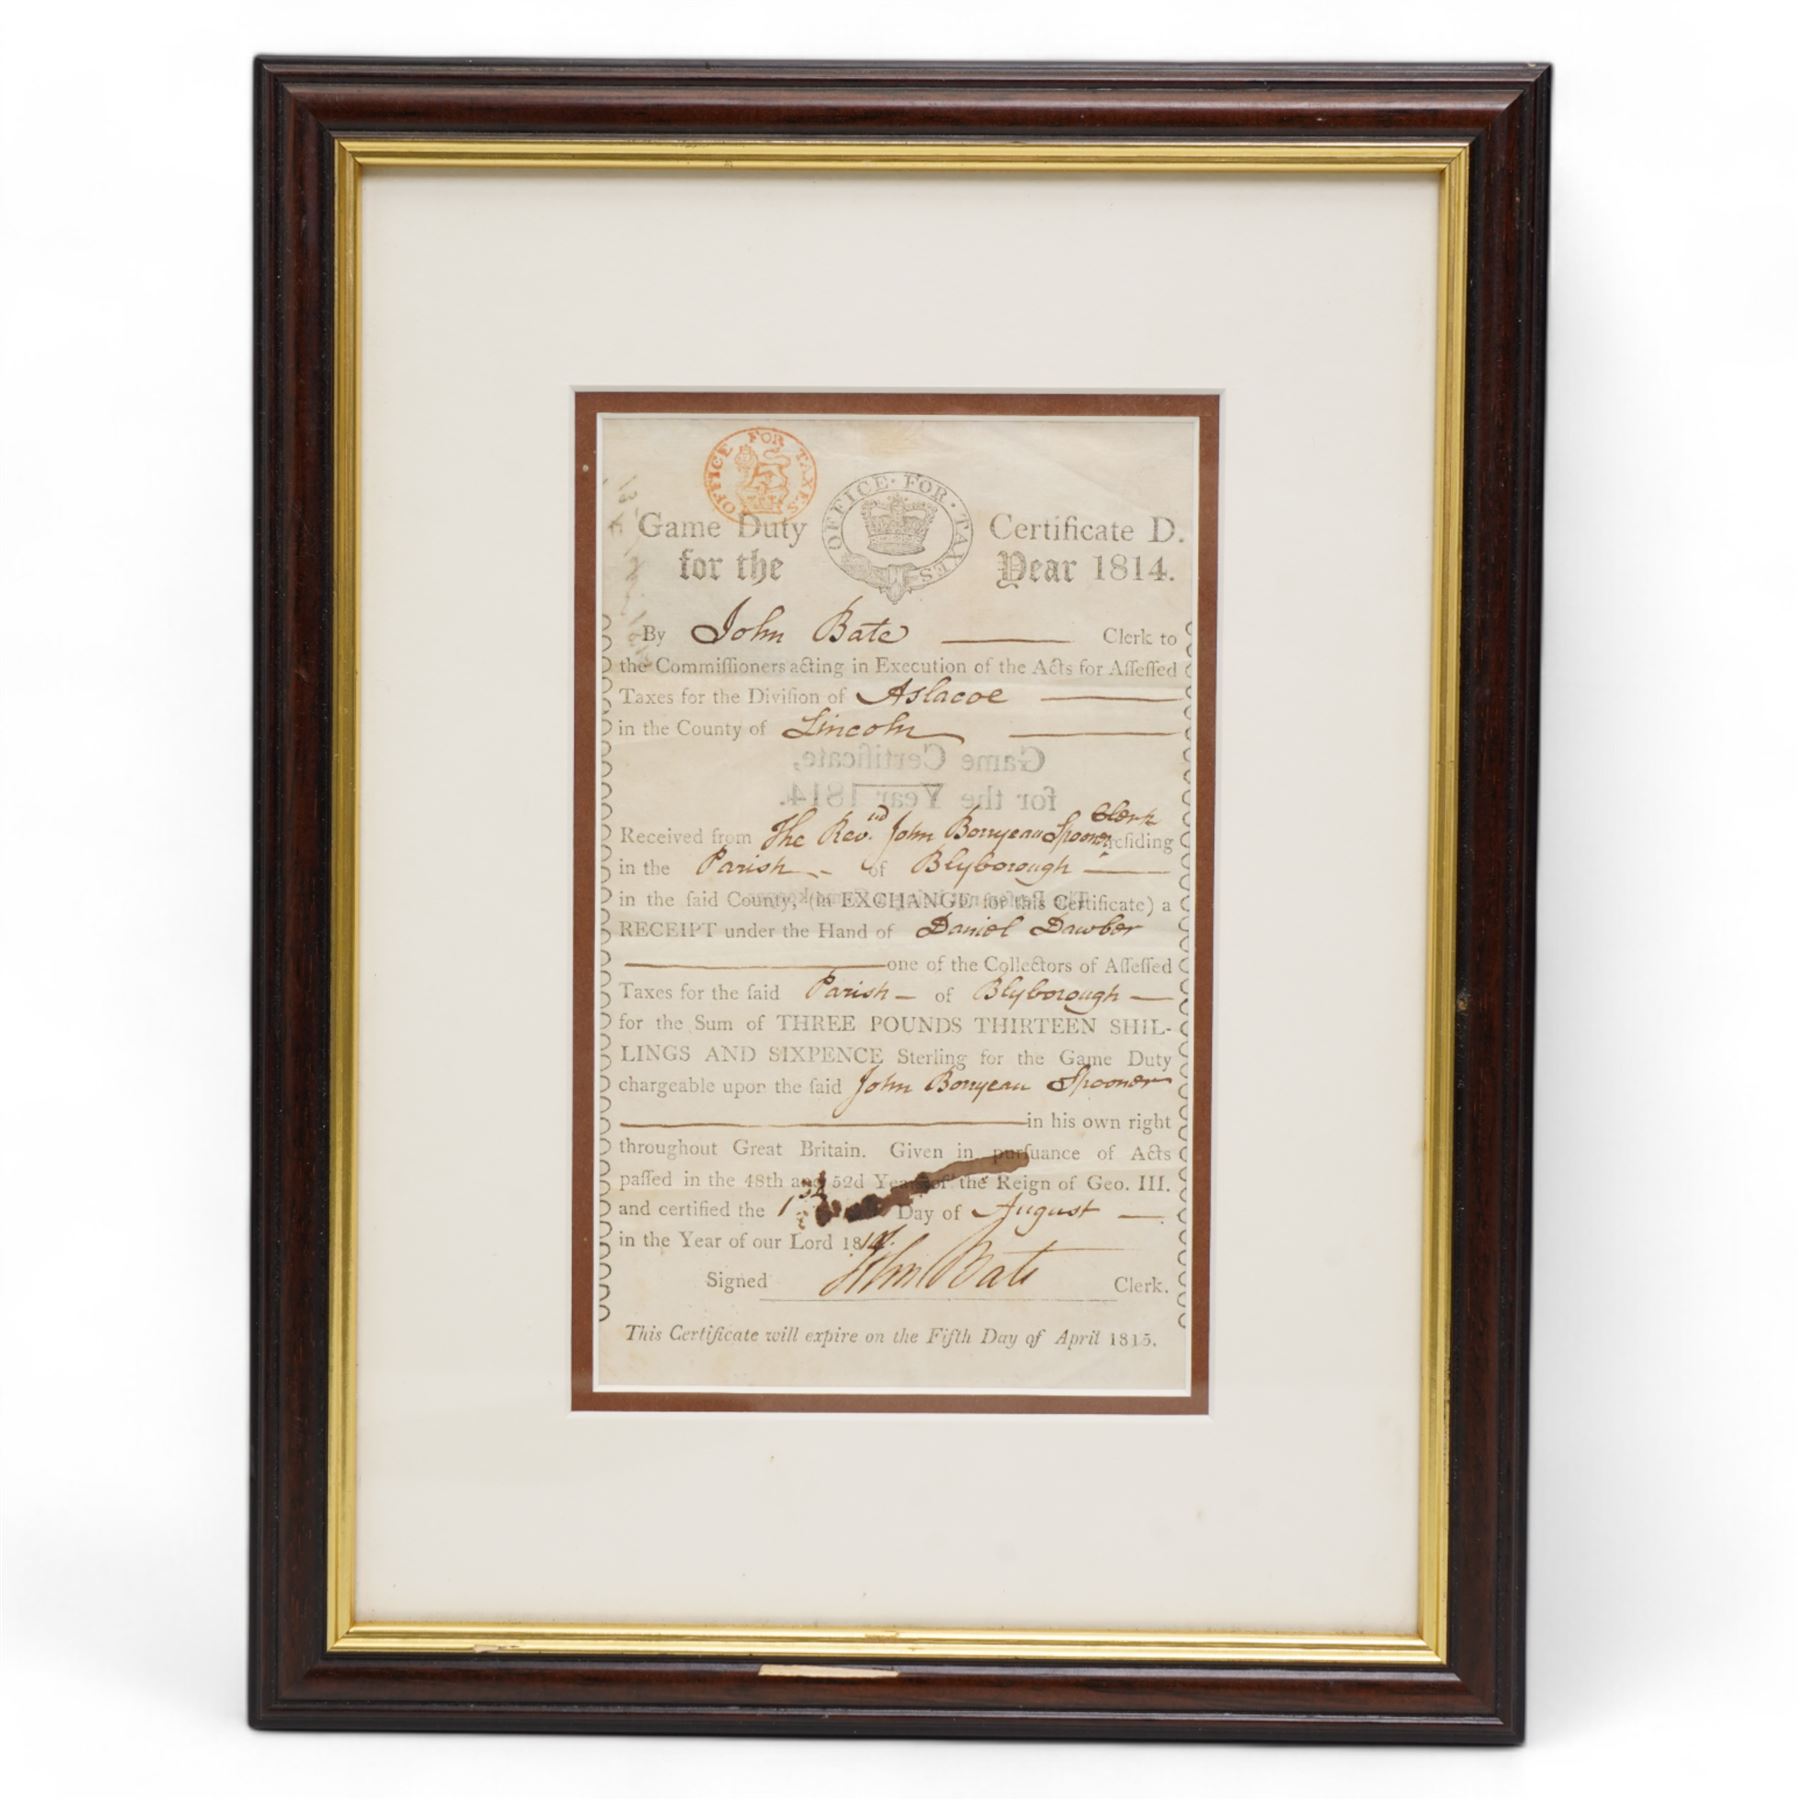 OFFICE FOR TAXES
OFFICE · FOR · TAXES
Game Duty Certificate D.
for the Year 1814.
By John Bate Clerk to
the Commiſſioners acting in Execution of the Acts for Aſſeſſed
Taxes for the Diviſion of Aslacoe
in the County of Lincoln
Game Certificate,
for the Year 1814.
Clerk
Received from The Revd. John Bonyeau Spooner reſiding
in the Parish of Blyborough
in the ſaid County, (in EXCHANGE for this Certificate) a
RECEIPT under the Hand of Daniel Dawber
one of the Collectors of Aſſeſſed
Taxes for the ſaid Parish of Blyborough
for the Sum of THREE POUNDS THIRTEEN SHIL-
LINGS AND SIXPENCE Sterling for the Game Duty
chargeable upon the ſaid John Bonyeau Spooner
in his own right
throughout Great Britain. Given in purſuance of Acts
paſſed in the 48th and 52d Years of the Reign of Geo. III.
and certified the 1st Day of August
in the Year of our Lord 1814.
Signed John Bate Clerk.
This Certificate will expire on the Fifth Day of April 1815.